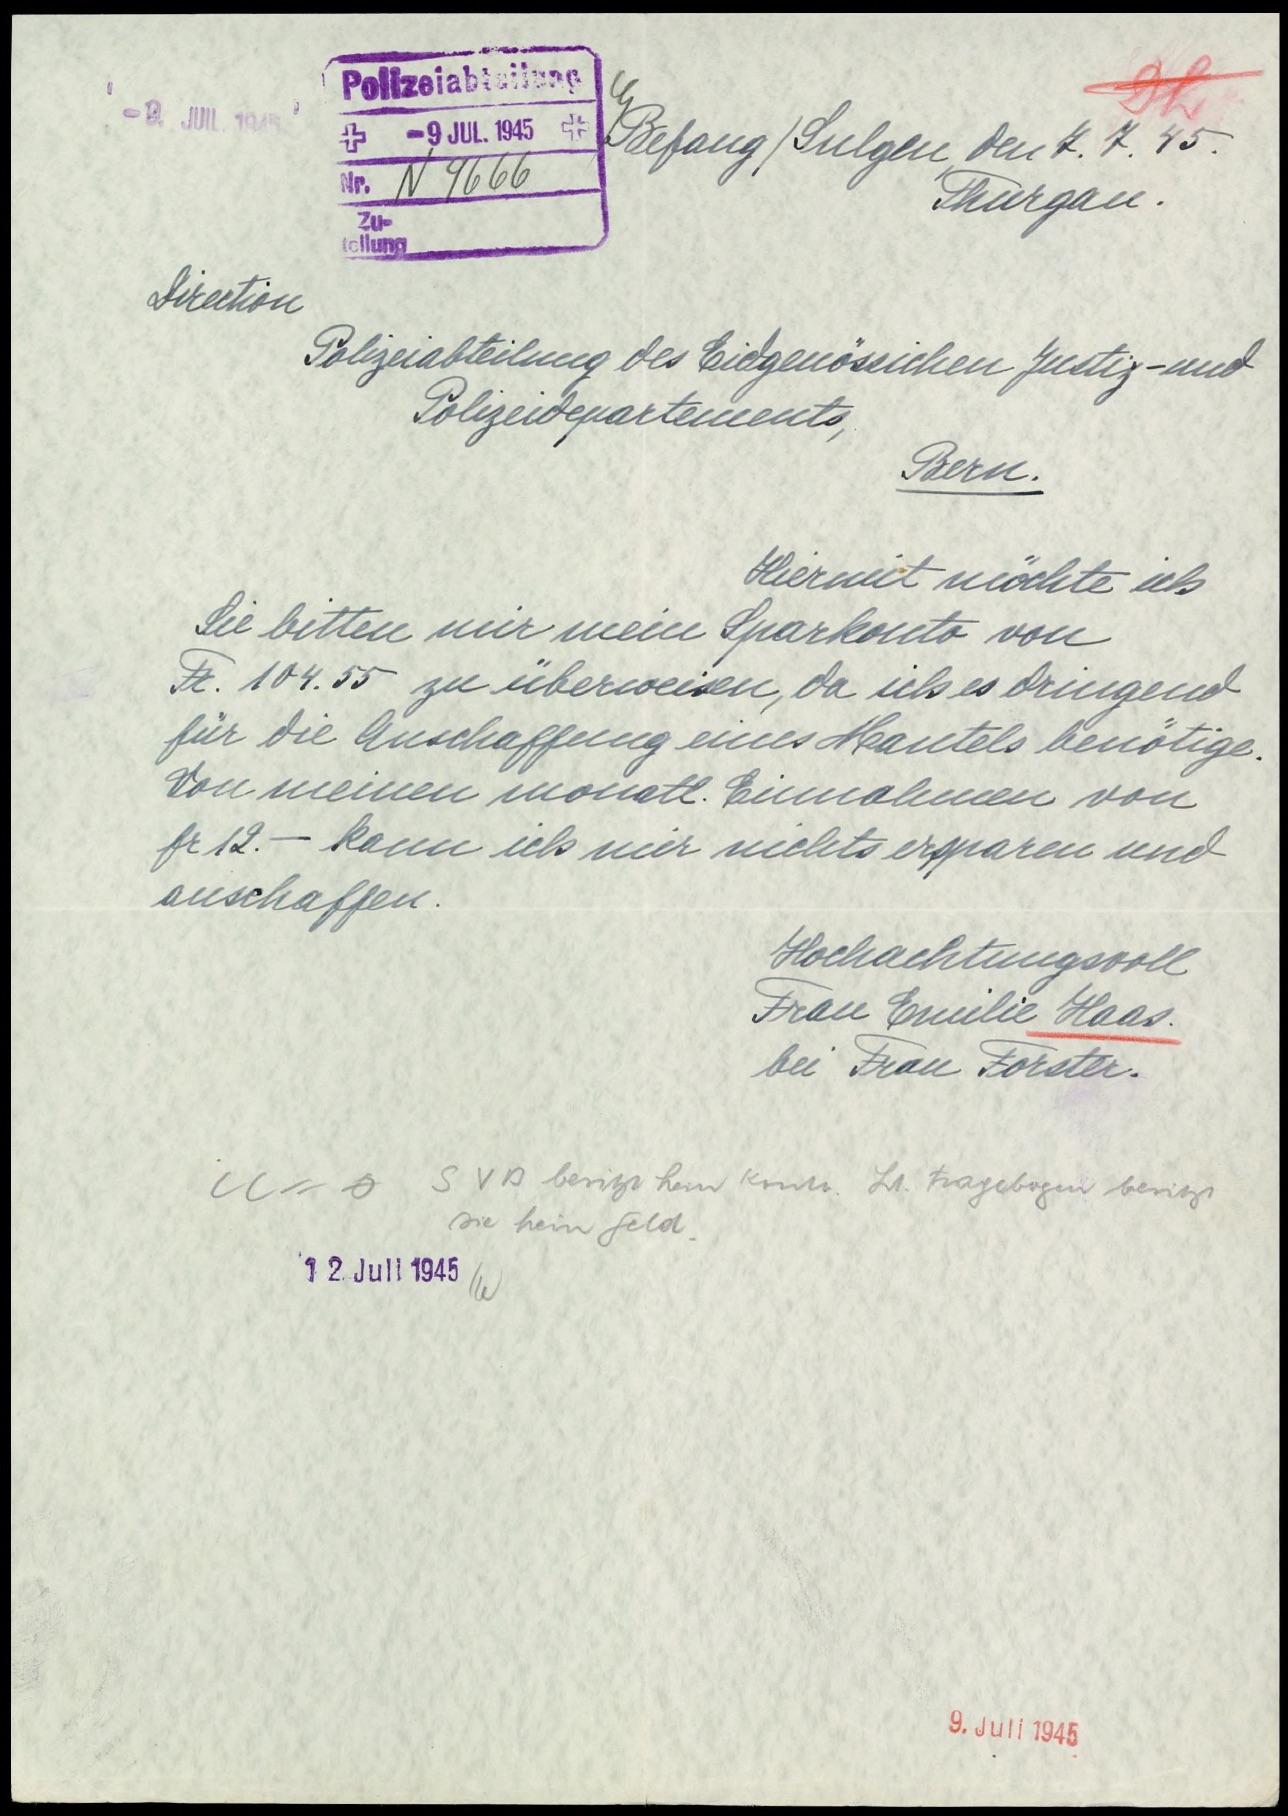 -9. JUIL. 1945
Polizeiabteilung
-9 JUL. 1945
Nr. N 9666
Zu-
teilung
Befang/Sulgen, den 7. 7. 45.
Thurgau.
Direction
Polizeiabteilung des Eidgenössichen Justiz-und
Polizeidepartements,
Bern.
Hiermit möchte ich
Sie bitten mir mein Sparkonto von
Fr. 104.55 zu überweisen, da ich es dringend
für die Anschaffung eines Mantels benötige.
Von meinen monatl. Einnahmen von
fr 12.— kann ich mir nichts ersparen und
anschaffen.
Hochachtungsvoll
Frau Emilie Haas.
bei Frau Forster.
besitzt kein Konto. Lt. Fragebogen besitzt
sie kein Geld.
12. Juli 1945
9. Juli 1945